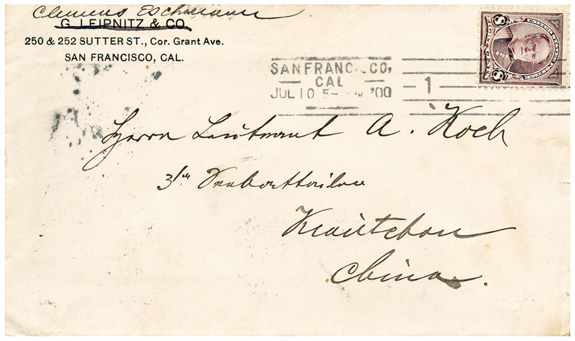 Clemens Eschmann
G. LEIPNITZ & CO.
250 & 252 SUTTER ST., Cor. Grant Ave.
SAN FRANCISCO, CAL.
SAN FRANCISCO,
CAL
JUL 10 5- '00
1
Herrn Lieutenant A. Koch
3/ Seebattailon
Kiautchou
China.